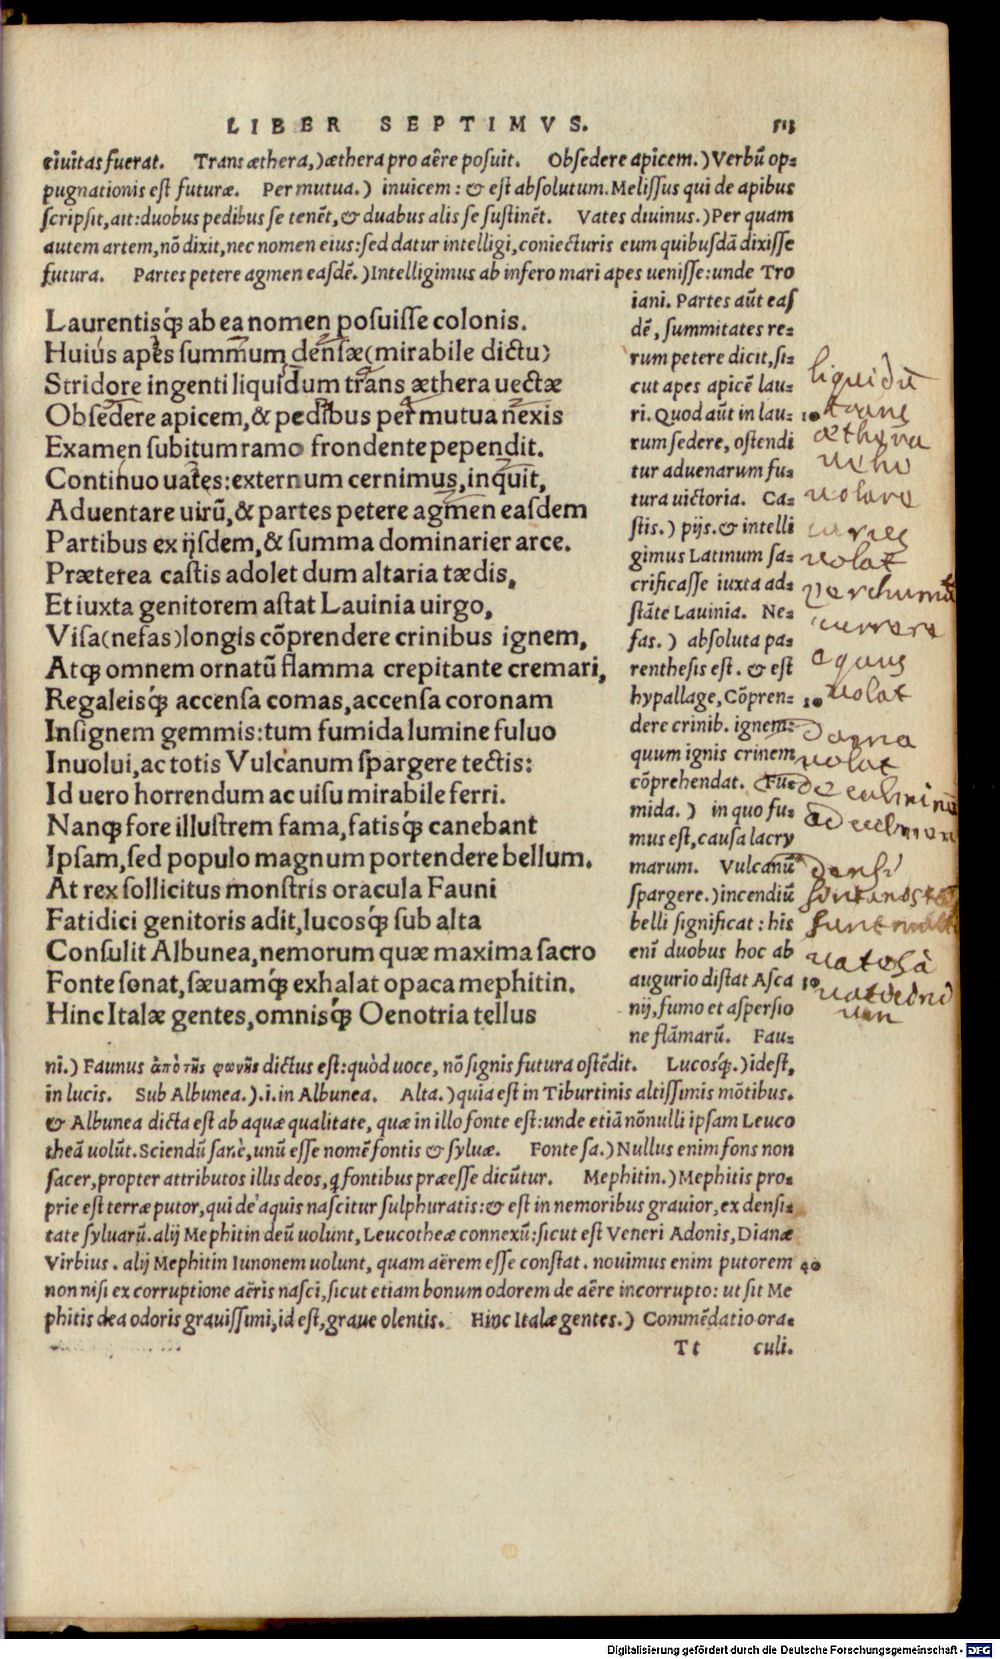 LIBER SEPTIMVS. 513
ciuitas fuerat. Trans æthera,) æthera pro aëre posuit. Obsedere apicem.) Verbũ op-
pugnationis est futuræ. Per mutua.) inuicem: & est absolutum. Melissus qui de apibus
scripsit, ait: duobus pedibus se tenẽt, & duabus alis se sustinẽt. Vates diuinus.) Per quam
autem artem, nõ dixit, nec nomen eius: sed datur intelligi, coniecturis eum quibusdã dixisse
futura. Partes petere agmen easdẽ.) Intelligimus ab infero mari apes uenisse: unde Tro
Laurentisq́; ab ea nomen posuisse colonis.
Huius apes summum densæ(mirabile dictu)
Stridore ingenti liquidum trans æthera uectæ
Obsedere apicem, & pedibus per mutua nexis
Examen subitum ramo frondente pependit.
Continuo uates: externum cernimus, inquit,
Aduentare uirũ, & partes petere agmen easdem
Partibus ex ijsdem, & summa dominarier arce.
Præterea castis adolet dum altaria tædis,
Et iuxta genitorem astat Lauinia uirgo,
Visa(nefas)longis cõprendere crinibus ignem,
Atq; omnem ornatũ flamma crepitante cremari,
Regaleisq́; accensa comas, accensa coronam
Insignem gemmis: tum fumida lumine fuluo
Inuolui, ac totis Vulcanum spargere tectis:
Id uero horrendum ac uisu mirabile ferri.
Nanq; fore illustrem fama, fatisq́; canebant
Ipsam, sed populo magnum portendere bellum.
At rex sollicitus monstris oracula Fauni
Fatidici genitoris adit, lucosq́; sub alta
Consulit Albunea, nemorum quæ maxima sacro
Fonte sonat, sæuamq́; exhalat opaca mephitin.
Hinc Italæ gentes, omnisq́; Oenotria tellus
iani. Partes aũt eas
dẽ, summitates re-
rum petere dicit, si-
cut apes apicẽ lau-
ri. Quod aũt in lau- 10
rum sedere, ostendi
tur aduenarum fu-
tura uictoria. Ca-
stis.) pijs. & intelli
gimus Latinum sa-
crificasse iuxta ad-
stãte Lauinia. Ne-
fas.) absoluta pa-
renthesis est. & est
hypallage, Cõpren-
dere crinib. ignem-
quum ignis crinem
cõprehendat. Fu-
mida.) in quo fu-
mus est, causa lacry
marum. Vulcanũ
spargere.) incendiũ
belli significat: his
enĩ duobus hoc ab
augurio distat Asca
nij, fumo et aspersio
ne flãmarũ. Fau-
liquidũ
trans
æthera
veho
volare
volat
currere
aquas
volat
volat
densi
ni.) Faunus ἀπὸ τῆς φωνῆς dictus est: quòd uoce, nõ signis futura ostẽdit. Lucosq́;.) idest,
in lucis. Sub Albunea.).i. in Albunea. Alta.) quia est in Tiburtinis altissimis mõtibus.
& Albunea dicta est ab aquæ qualitate, quæ in illo fonte est: unde etiã nõnulli ipsam Leuco
theã uolũt. Sciendũ sanè, unũ esse nomẽ fontis & syluæ. Fonte sa.) Nullus enim fons non
sacer, propter attributos illis deos, q fontibus præesse dicũtur. Mephitin.) Mephitis pro-
prie est terræ putor, qui de aquis nascitur sulphuratis: & est in nemoribus grauior, ex densi-
tate syluarũ. alij Mephitin deũ uolunt, Leucotheæ connexũ: sicut est Veneri Adonis, Dianæ
Virbius. alij Mephitin Iunonem uolunt, quam aërem esse constat. nouimus enim putorem 40
non nisi ex corruptione aëris nasci, sicut etiam bonum odorem de aëre incorrupto: ut sit Me
phitis dea odoris grauissimi, id est, graue olentis. Hinc Italæ gentes.) Commẽdatio ora-
Tt culi.
Digitalisierung gefördert durch die Deutsche Forschungsgemeinschaft - DFG